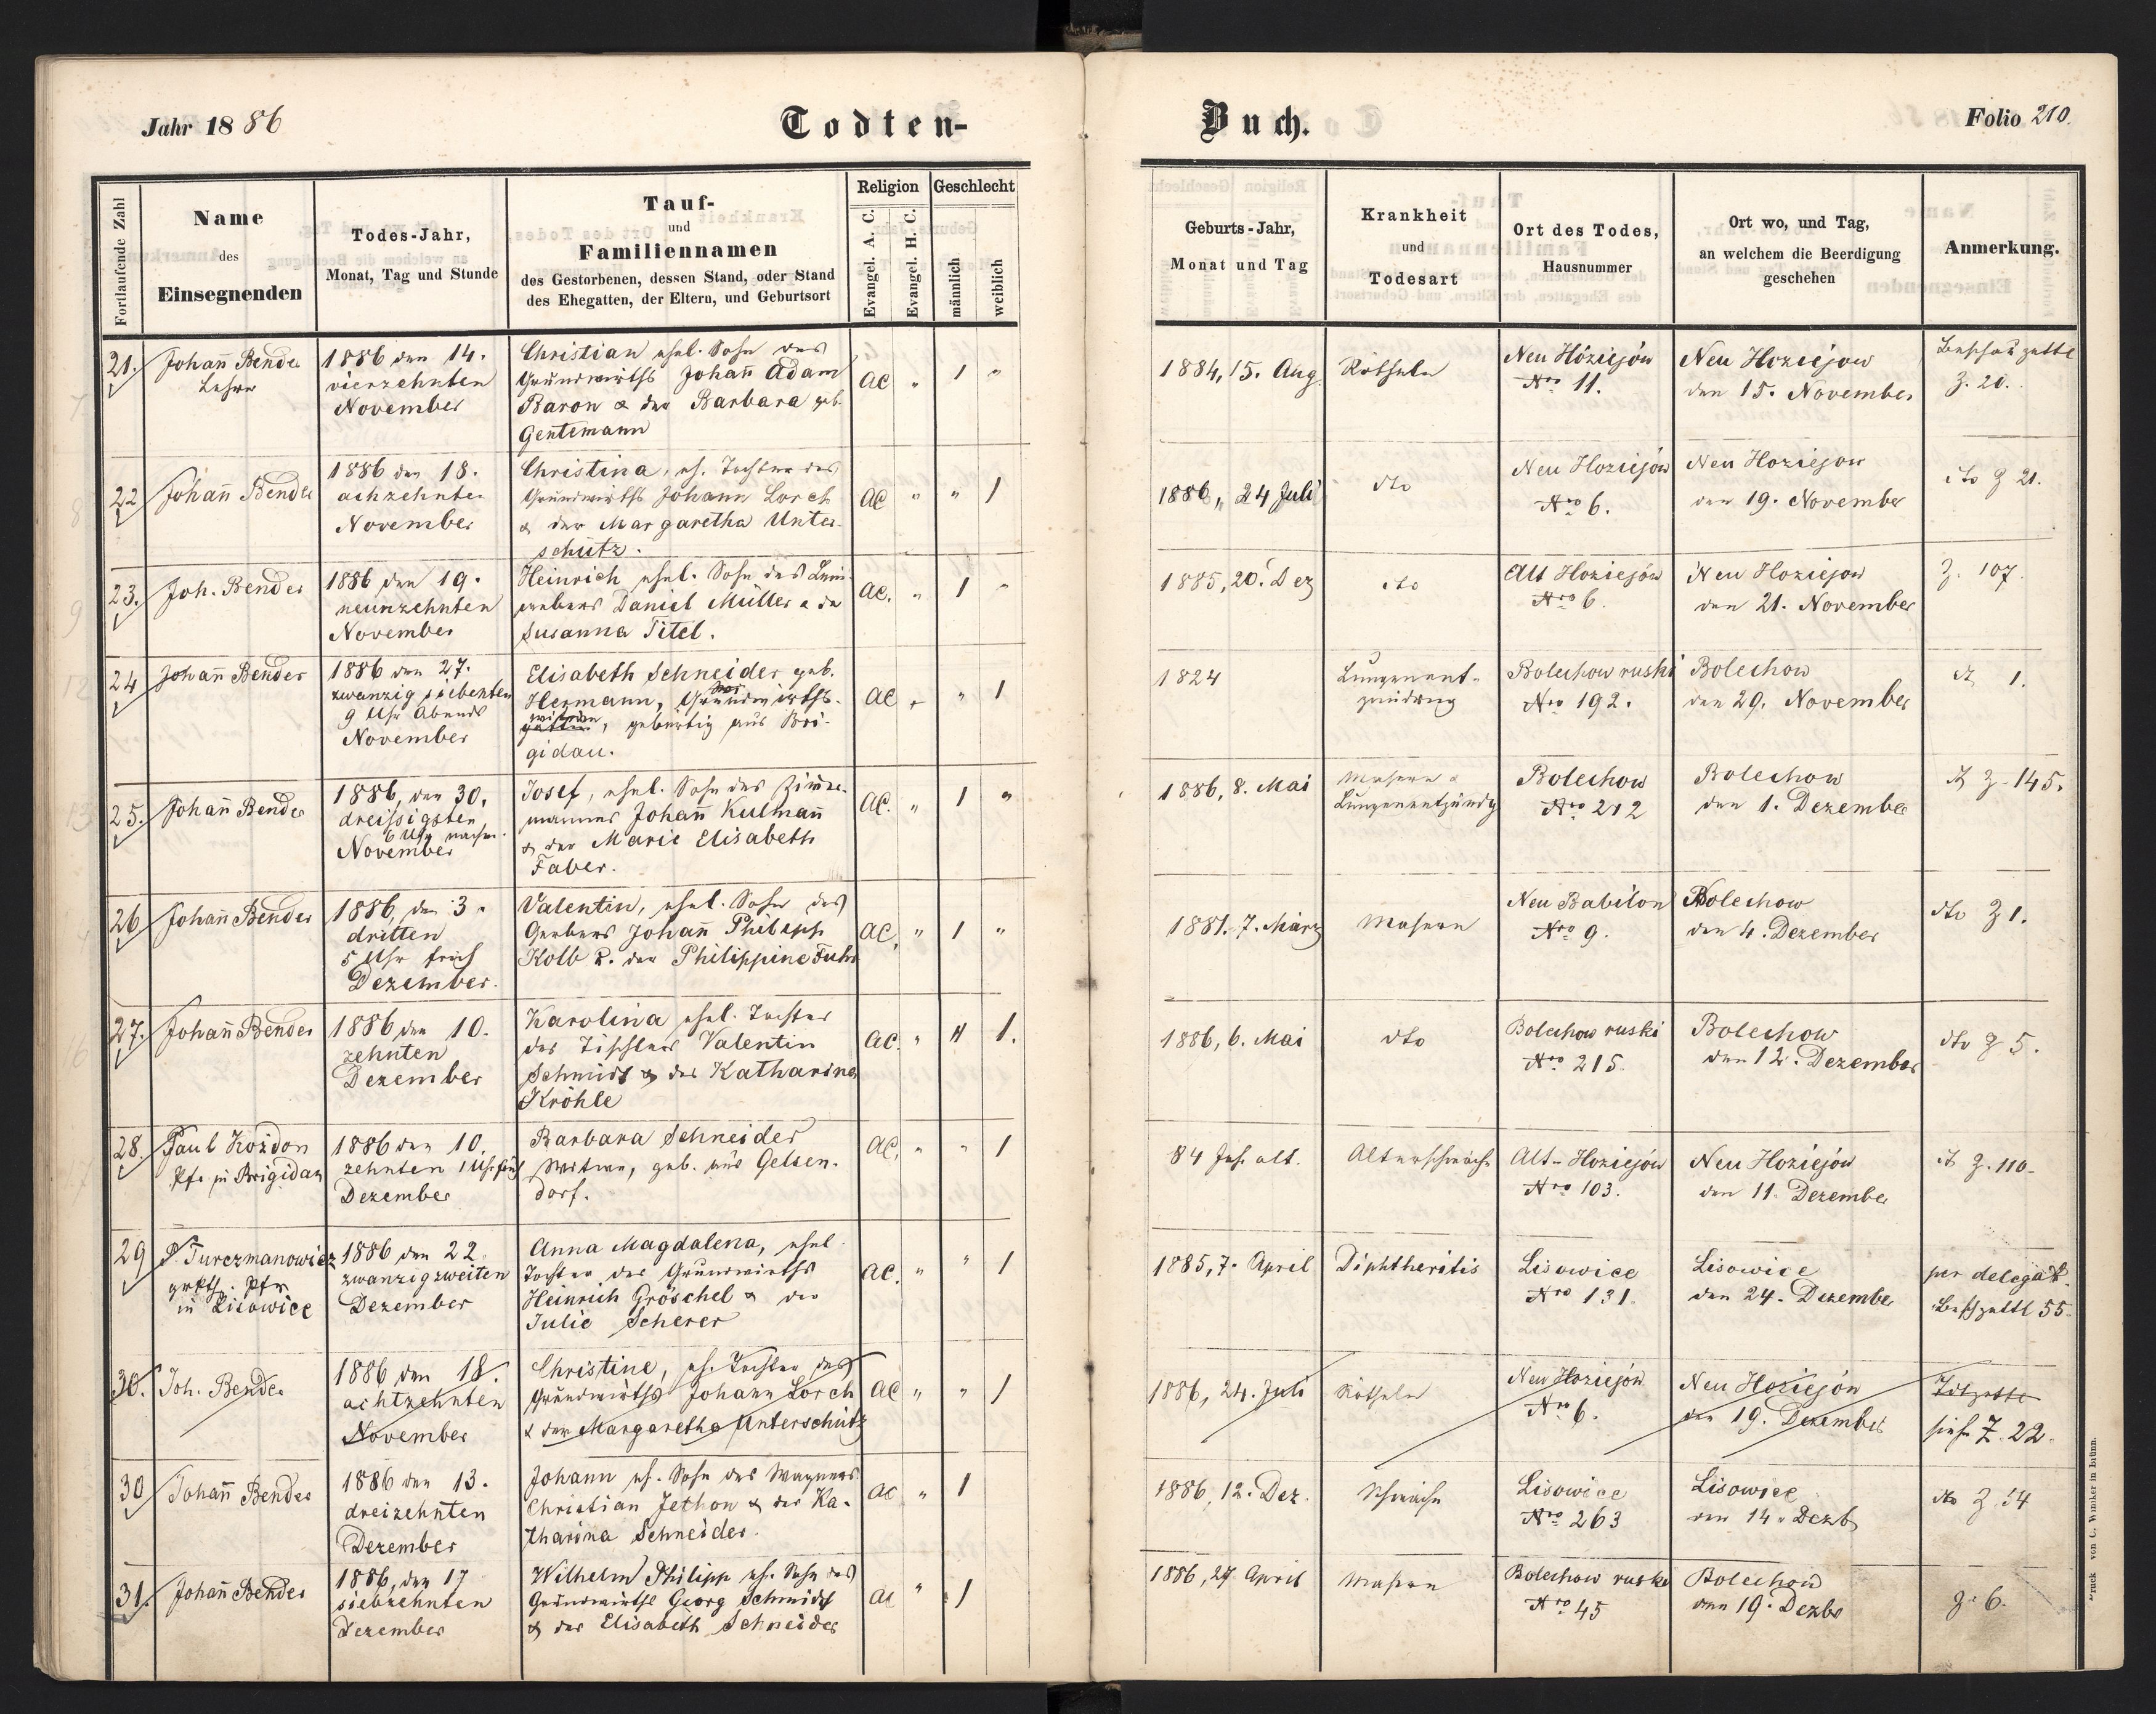 Jahr 1886
Todten-
Fortlaufende Zahl
Name
des
Einsegnenden
Todes-Jahr,
Monat, Tag und Stunde
Tauf-
und
Familiennamen
des Gestorbenen, dessen Stand, oder Stand
des Ehegatten, der Eltern, und Geburtsort
Religion
Evangel. A. C.
Evangel. H. C.
Geschlecht
männlich
weiblich
21.
Johañ Bender
Lehrer
1886 den 14.
vierzehnten
November
Christian ehel. Sohn des
Grundwirths Johañ Adam
Baron & der Barbara geb.
Gentemann
AC " 1 "
22
Johañ Bender
1886 den 18.
achzehnten
November
Christina, eh. Tochter des
Grundwirths Johann Lorch
& der Margaretha Unter-
schütz.
AC " " 1
23.
Joh. Bender
1886 den 19.
neunzehnten
November
Heinrich ehel. Sohn des Lein-
webers Daniel Müller & der
Susanna Titel.
AC. " 1 "
24
Johañ Bender
1886 den 27.
zwanzig siebenten
9 Uhr Abends
November
Elisabeth Schneider geb.
Hermann, Grundwirths-
witwe
gattin, gebürtig aus Bri-
gidau.
AC " " 1
25.
Johañ Bender
1886, den 30.
dreissigsten
6 Uhr nachm.
November
Josef, ehel. Sohn des Zimmer-
mannes Johañ Kulmañ
& der Marie Elisabeth
Faber.
AC. " 1 "
26
Johañ Bender
1886, den 3.
dritten
5 Uhr früh
Dezember.
Valentin, ehel. Sohn des
Gerbers Johañ Philipp
Kolb & der Philippine Fuhr
AC, " 1 "
27.
Johañ Bender
1886 den 10.
zehnten
Dezember
Karolina ehel. Tochter
des Tischlers Valentin
Schmidt & der Katharina
Kröhle
AC. " " 1.
28.
Paul Kozdon
Pfr. in Brigidau
1886 den 10.
zehnten 1 Uhr früh
Dezember
Barbara Schneider
Witwe, geb. aus Gelsen-
dorf.
AC, " " 1
29
P. Turczmanowicz
grkth. Pfr.
in Lisowice
1886 den 22.
zwanzigzweiten
Dezember
Anna Magdalena, ehel.
Tochter des Grundwirths
Heinrich Gröschel & der
Julie Scherer
AC. " " 1
30.
Joh. Bender
1886 den 18.
achtzehnten
November
Christine, eh. Tochter des
Grundwirths Johann Lorch
& der Margaretha Unterschütz
AC " " 1
30
Johañ Bender
1886 den 13.
dreizehnten
Dezember
Johann eh. Sohn des Wagners
Christian Jethon & der Ka-
tharina Schneider.
AC " 1
31.
Johañ Bender
1886, den 17
siebzehnten
Dezember
Wilhelm Philipp eh. Sohn des
Grundwirths Georg Schmidt
& der Elisabeth Schneider
AC " 1
Buch.
Folio 210.
Geburts-Jahr,
Monat und Tag
Krankheit
und
Todesart
Ort des Todes,
Hausnummer
Ort wo, und Tag,
an welchem die Beerdigung
geschehen
Anmerkung.
1884, 15. Aug.
Rötheln
Neu Hoziejów
Nro 11.
Neu Hoziejow
den 15. November
Beschauzettl
Z. 20.
1886, 24 Juli
dto
Neu Hoziejów
Nro 6.
Neu Hoziejow
den 19. November
dto Z 21.
1885, 20. Dez
dto
Alt Hoziejów
Nro 6.
Neu Hoziejow
den 21. November
Z. 107.
1824
Lungenent-
zündung
Bolechow ruski
Nro 192.
Bolechow
den 29. November
dt 1.
1886, 8. Mai
Masern &
Lungenentzündg
Bolechow
Nro 212
Bolechow
den 1. Dezember
dt Z. 145.
1881. 7. März
Masern
Neu Babilon
Nro 9.
Bolechow
den 4. Dezember
dto Z 1.
1886, 6. Mai
dto
Bolechow ruski
Nro 215.
Bolechow
den 12. Dezember
dto Z 5.
84 Jah. alt.
Altersschwäche
Alt-Hoziejów
Nro 103.
Neu Hoziejów
den 11. Dezember
dt Z. 110.
1885, 7. April
Diphtheritis
Lisowice
Nro 131.
Lisowice
den 24. Dezember
per delegat.
Beschzettl 55.
1886, 24. Juli
Rötheln
Neu Hoziejów
Nro 6.
Neu Hoziejów
den 19. Dezember
sieh Z. 22.
1886, 12. Dez.
Schwäche
Lisowice
Nro 263
Lisowice
den 14. Dezb
dto Z. 54
1886, 27 April
Masern
Bolechow ruski
Nro 45
Bolechow
den 19. Dezbr
Z. 6.
Druck von C. Winiker in Brünn.